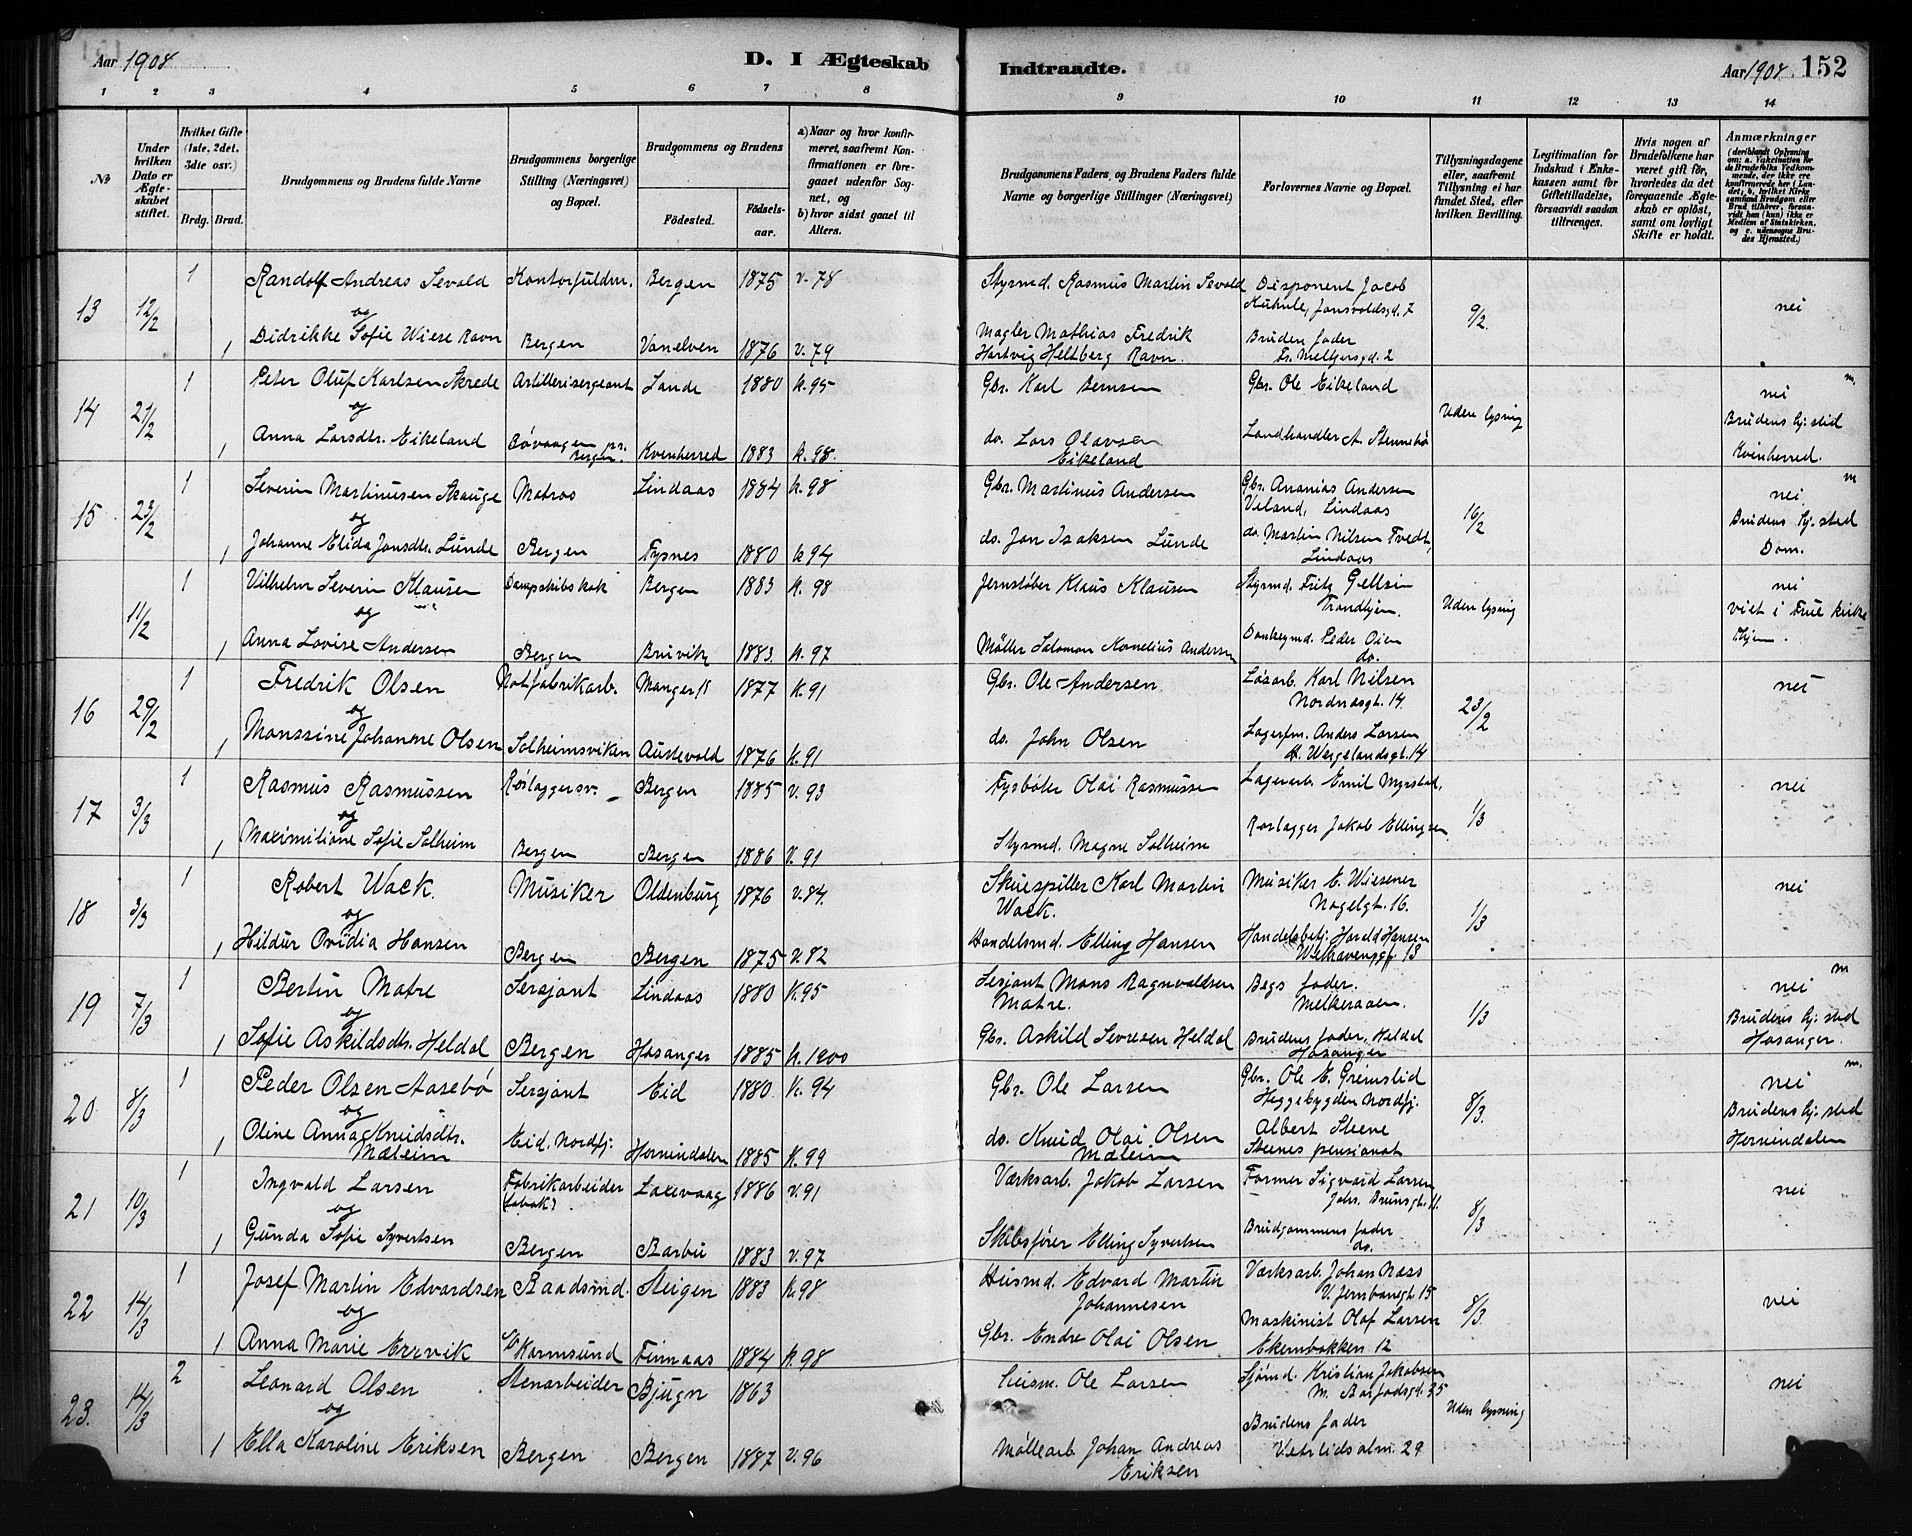 Aar 1908
D. I Ægteskab
Indtraadte.
Aar 1908. 152
1 2 3 4 5 6 7 8 9 10 11 12 13 14
No
Under hvilken Dato er Ægteskabet stiftet.
Hvilket Gifte (1ste, 2det, 3die osv.)
Brdg. Brud.
Brudgommens og Brudens fulde Navne
Brudgommens borgerlige Stilling (Næringsvei) og Bopæl.
Brudgommens og Brudens
Fødested.
Fødselsaar.
a) Naar og hvor konfirmeret, saafremt Konfirmationen er foregaaet udenfor Sognet, og
b) hvor sidst gaaet til Alters.
Brudgommens Faders og Brudens Faders fulde Navne og borgerlige Stillinger (Næringsvei)
Forlovernes Navne og Bopæl.
Tillysningsdagene eller, saafremt Tillysning ei har fundet Sted, efter hvilken Bevilling.
Legitimation for Indskud i Enkekassen samt for Giftetilladelse, forsaavidt saadan tiltrænges.
Hvis nogen af Brudefolkene har været gift før, hvorledes da det foregaaende Ægteskab er opløst, samt om lovligt Skifte er holdt.
Anmærkninger
(deriblandt Oplysning om: a. Vakcination for de Brudefolks Vedkommende, der ikke ere konfirmerede her i Landet; b. hvilket Kirkesamfund Brudgom eller Brud tilhører, forsaavidt han (hun) ikke er Medlem af Statskirken, og c. udensogns Brudes Hjemsted.)
13 12/2 1 Randolf Andreas Sevold Kontorfuldm. Bergen 1875 v. 78 Styrmd. Rasmus Martin Sevold Disponent Jacob 9/2 nei
og
1 Didrikke Sofie Wiese Ravn Bergen Vanelven 1876 v. 79 Magler Mathias Fredrik Bruden fader
Hartvig Heltberg Ravn.
14 21/2 1 Peter Oluf Karlsen Skrede Artillerisergeant Lande 1880 k. 95 Gbr. Karl Gbr. Ole Eikeland Uden lysning nei m.
og
1 Anna Larsdtr. Eikeland Bøvaagen pr. Bergen. Kvinherred 1883 k. 98. do. Lars Olavsen Eikeland Landhandler A. Stennebø Brudens hj. sted Kvinherred.
15 23/2 1 Severin Martinusen Skauge Matros Lindaas 1884 k. 98 Gbr. Martinus Andersen Gbr. Ananias Andersen 16/2 nei m
Lindaas
og
1 Johanne Elida Jonsdtr. Lunde Bergen Fysnes 1880 k 94 do. Jon Isaksen Lunde do. Martin Nilsen Tvedt, Lindaas Brudens hj. sted Dom.
11/2 1 Vilhelm Severin Klausen Dampskibskok Bergen 1883 k. 98 Jernstøber Klaus Klausen Styrmd. Fritz Trondhjem. Uden lysning nei
og
viet i Frue kirke Thjem.
1 Anna Lovise Andersen Bergen Bruvik 1883. k. 97 Møller Salomon Kornelius Andersen Peder Oien do.
16 29/2 1 Fredrik Olsen Notfabrikarb. Manger 1877 k. 91 Gbr. Ole Andersen. Løsarb. Karl Nilsen Nordnæsgt. 14. 23/2 nei
og
1 Monssine Johanne Olsen Solheimsviken Austevold 1876 k. 91 do. John Olsen Lagerfm. Anders Larsen H. Wergelandsgt. 14
17 3/3 1 Rasmus Rasmussen Rørlæggersv. Bergen 1885 v. 93 Fyrbøter Olai Rasmussen Lagerarb. Emil Myrstad, 1/3 nei
og
1 Maximiliane Sofie Solheim Bergen Bergen 1886 v. 91 Styrmd. Magne Solheim Rørlægger Jakob Ellingsen
18 3/3 1 Robert Wack. Musiker Oldenburg 1876 v. 84. Skuespiller Karl Martin Wack. Musiker E. Wiesener Nagelgt. 16. 1/3 nei
og
1 Hildur Ovidia Hansen Bergen Bergen 1875 v. 82 Handelsmd. Elling Hansen Handelsbetj. Harald Hansen Welhavensgt 13
19 7/3 1 Bertin Matre Sersjant Lindaas 1880 k. 95 Sersjant Mons Ragnvaldsen Matre. Begs fader. Melkeraaen. 1/3 nei m
og
1 Sofie Askildsdtr. Heldal Bergen Hosanger 1885 k. 1900 Gbr. Askild Heldal Brudens fader, Heldal Hosanger Brudens hj. sted Hosanger.
20 8/3 1 Peder Olsen Aasebø Sersjant Eid 1880. k. 94 Gbr. Ole Larsen Gbr. Ole E. Grimstid Heggebygden Nordfj. 8/3. nei m.
og
1 Oline Anna Knudsdtr. Mæleim Eid. Nordfj. Hornindalen 1885 k. 99 do. Knud Olai Olsen Mæleim Albert Steene Steenes pensionat Brudens hj. sted Hornindalen
21 10/3 1 Ingvald Larsen Fabrikarbeider (tobak) Laxevaag 1886 v. 91 Værksarb. Jakob Larsen Former Sigvard Larsen Johs. Brunsgt. 11. 8/3 nei
og
1 Gunda Sofie Syvertsen Bergen Barbu 1883 v. 97 Skibsfører Elling Syvertsen Brudgommens fader do.
22 14/3 1 Josef Martin Edvardsen Baadsmd. Steigen 1883 k. 98 Husmd. Edvard Martin Johannesen Værksarb. Johan Næss V. Jernbanegt 15 8/3. nei
og
1 Anna Marie Ervik S/S Karmsund Finnaas 1884 k. 98 Gbr. Endre Olai Olsen Maskinist Olaf Larsen Ekernbakken 12
23. 14/3 2 Leonard Olsen Stenarbeider Bjugn 1863 Ole Larsen Sjømd. Kristian Jakobsen 35 Uden lysning nei
og
1 Ella Karoline Eriksen Bergen Bergen 1887 v. 96 Møllearb. Johan Andreas Eriksen Brudens fader Vetrlidsalm. 29